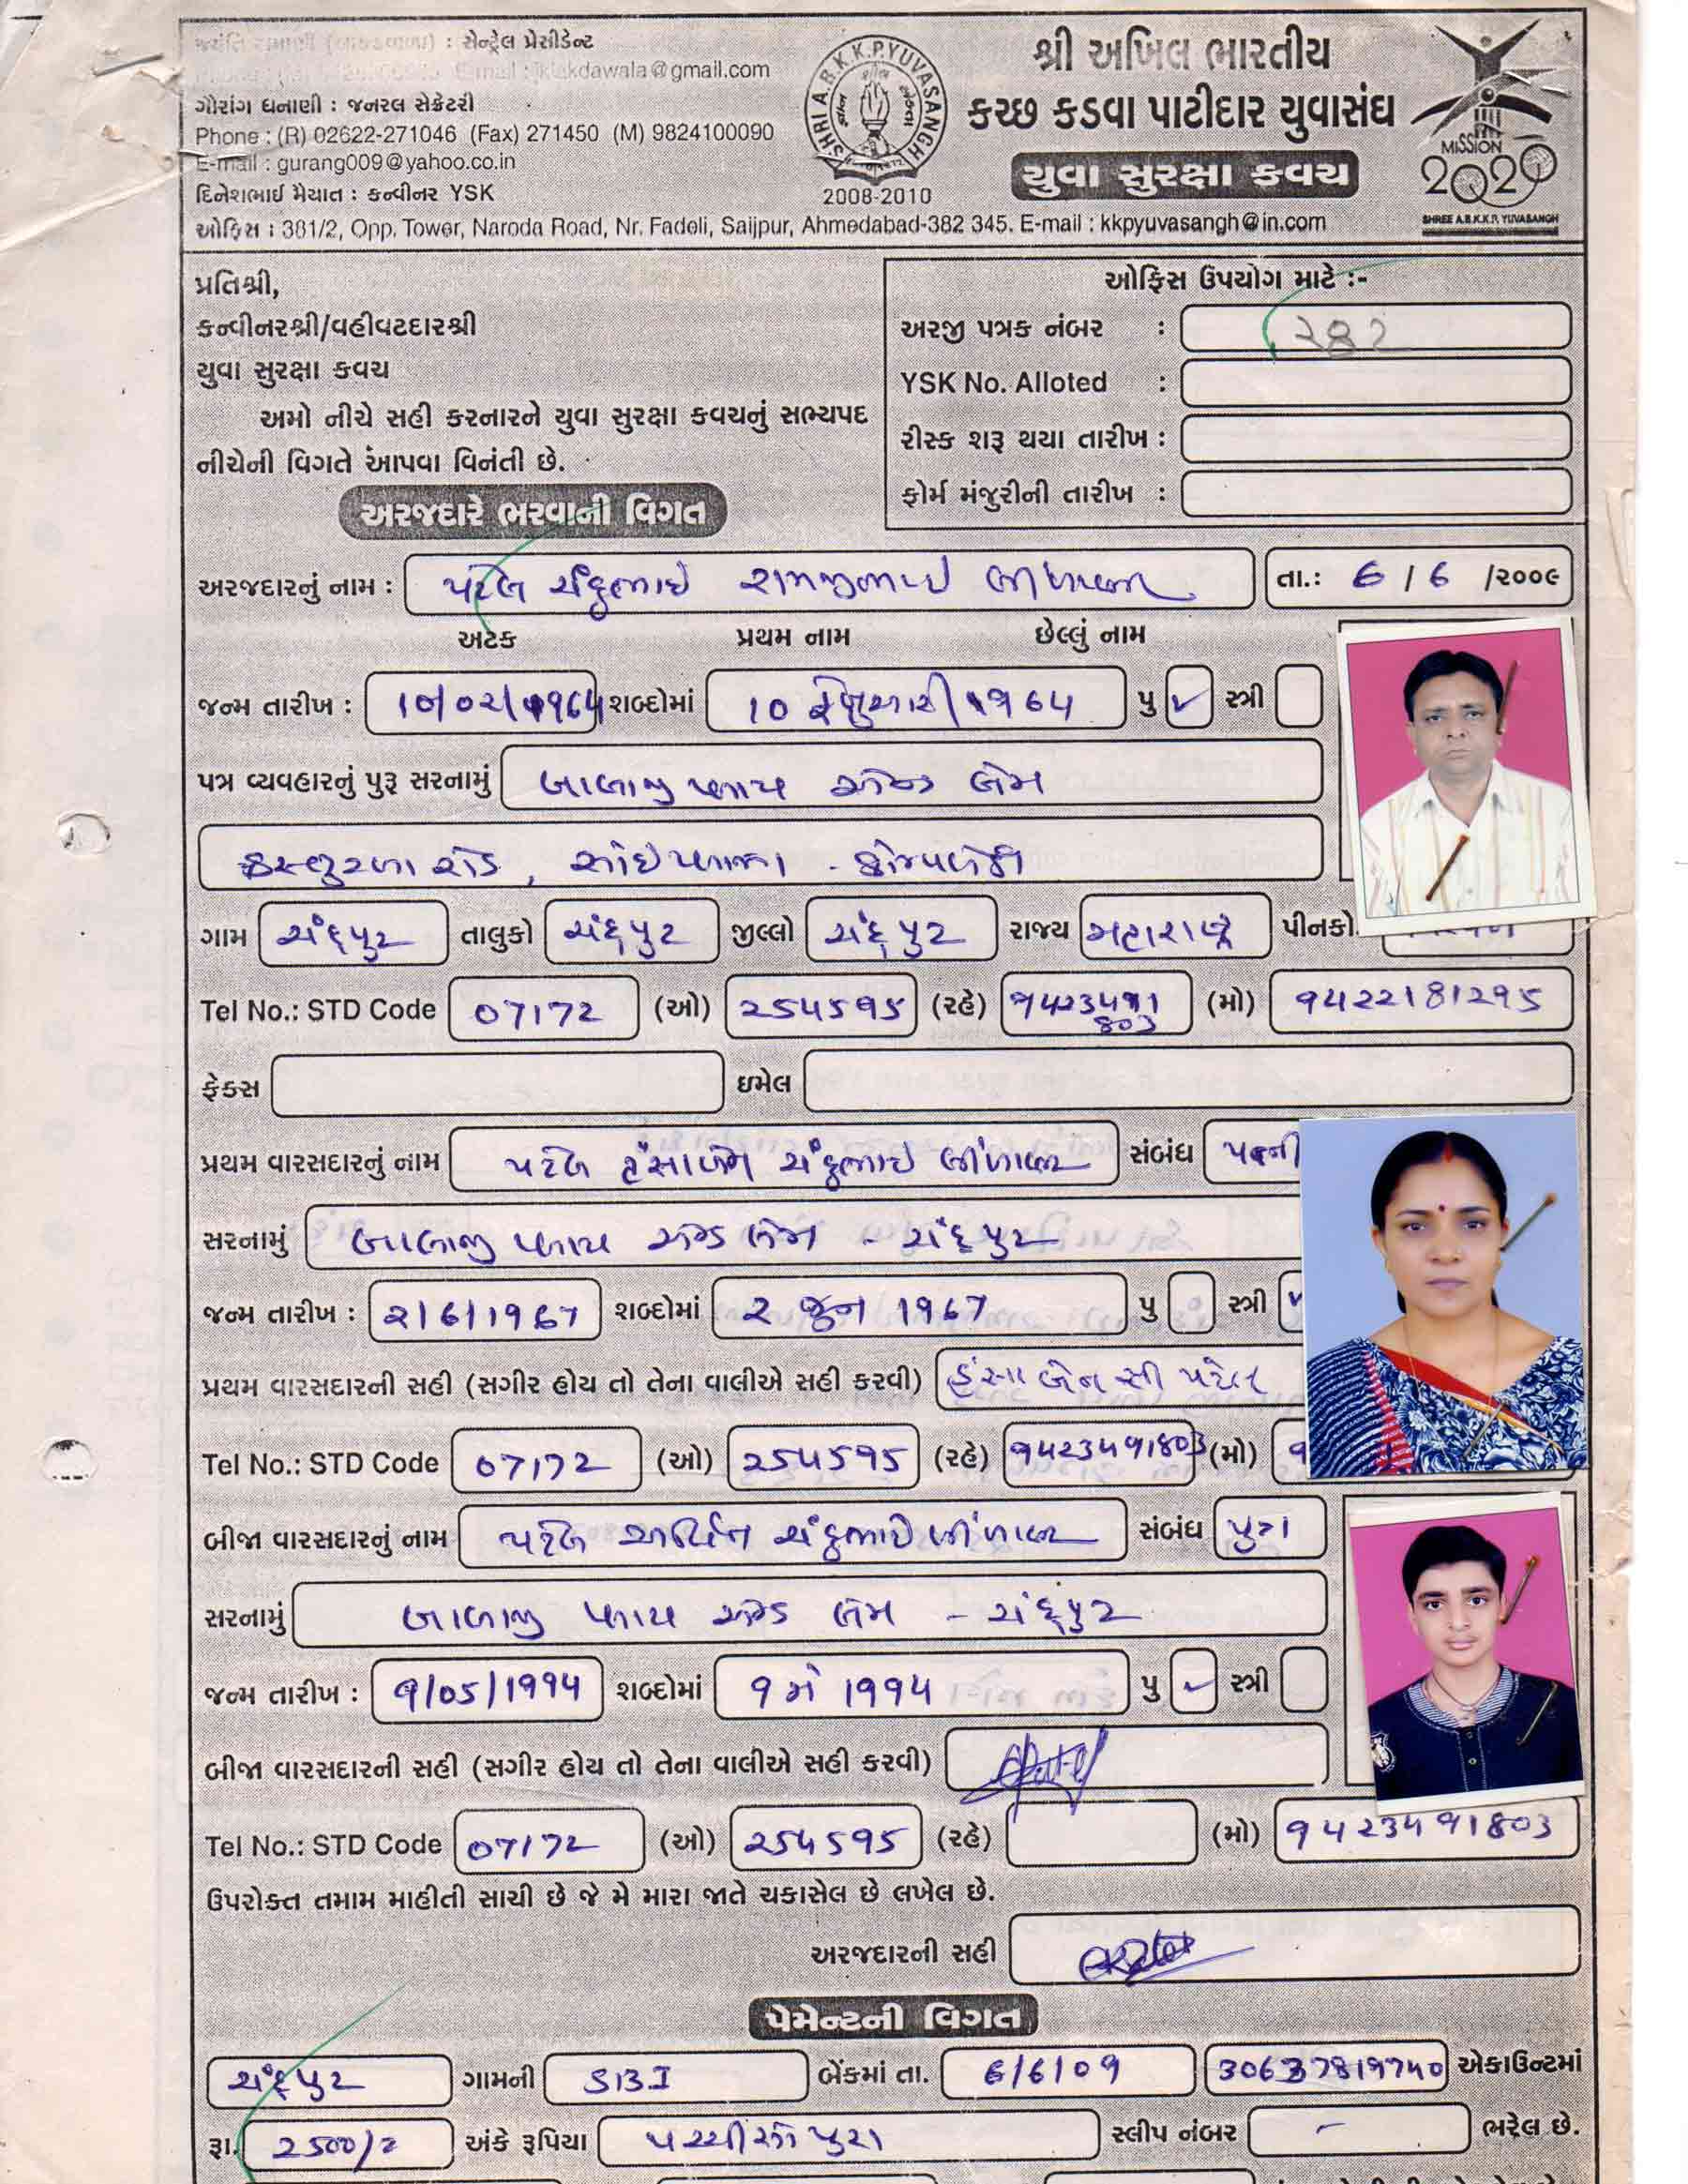 : સેન્ટ્રેલ પ્રેસીડેન્ટ
ગૌરાંગ ધનાણી : જનરલ સેક્રેટરી
Phone : (R) 02622-271046 (Fax) 271450 (M) 9824100090
E-mail : gurang009@yahoo.co.in
દિનેશભાઈ મૈયાત : કન્વીનર YSK
SHRI A.B.K.K.P. YUVASANGH
2008-2010
શ્રી અખિલ ભારતીય
કચ્છ કડવા પાટીદાર યુવાસંઘ
યુવા સુરક્ષા કવચ
MISSION
2020
SHREE A.B.K.K.P. YUVASANGH
ઓફિસ : 381/2, Opp. Tower, Naroda Road, Nr. Fadeli, Saijpur, Ahmedabad-382 345. E-mail : kkpyuvasangh@in.com
પ્રતિશ્રી,
કન્વીનરશ્રી/વહીવટદારશ્રી
યુવા સુરક્ષા કવચ
અમો નીચે સહી કરનારને યુવા સુરક્ષા કવચનું સભ્યપદ
નીચેની વિગતે આપવા વિનંતી છે.
ઓફિસ ઉપયોગ માટે :-
અરજી પત્રક નંબર : ૨૪૨
YSK No. Alloted :
રીસ્ક શરૂ થયા તારીખ :
ફોર્મ મંજુરીની તારીખ :
અરજદારે ભરવાની વિગત
અરજદારનું નામ : પટેલ ચંદુભાઈ રામજીભાઈ લીંબાણી તા.: 6 / 6 /૨૦૦૯
અટક પ્રથમ નામ છેલ્લું નામ
જન્મ તારીખ : 10/02/1964 શબ્દોમાં 10 ફેબ્રુઆરી 1964 પુ ✓ સ્ત્રી
પત્ર વ્યવહારનું પુરૂ સરનામું બાલાજી પ્લાય એન્ડ લેમ
કસ્તુરબા રોડ,
ગામ ચંદ્રપુર તાલુકો ચંદ્રપુર જીલ્લો ચંદ્રપુર રાજ્ય મહારાષ્ટ્ર પીનકો.
Tel No.: STD Code 07172 (ઓ) 254595 (રહે) 9423491803 (મો) 9422181295
ફેક્સ ઇમેલ
પ્રથમ વારસદારનું નામ પટેલ હંસાબેન ચંદુભાઈ લીંબાણી સંબંધ પત્ની
સરનામું બાલાજી પ્લાય એન્ડ લેમ - ચંદ્રપુર
જન્મ તારીખ : 2/6/1967 શબ્દોમાં 2 જુન 1967 પુ સ્ત્રી ✓
પ્રથમ વારસદારની સહી (સગીર હોય તો તેના વાલીએ સહી કરવી) હંસાબેન સી પટેલ
Tel No.: STD Code 07172 (ઓ) 254595 (રહે) 9423491803 (મો) 9
બીજા વારસદારનું નામ પટેલ ચંદુભાઈ લીંબાણી સંબંધ પુત્ર
સરનામું બાલાજી પ્લાય એન્ડ લેમ - ચંદ્રપુર
જન્મ તારીખ : 9/05/1994 શબ્દોમાં 9 મે 1994 પુ ✓ સ્ત્રી
બીજા વારસદારની સહી (સગીર હોય તો તેના વાલીએ સહી કરવી)
Tel No.: STD Code 07172 (ઓ) 254595 (રહે) (મો) 9423491803
ઉપરોક્ત તમામ માહીતી સાચી છે જે મે મારા જાતે ચકાસેલ છે લખેલ છે.
અરજદારની સહી
પેમેન્ટની વિગત
ચંદ્રપુર ગામની SBI બેંકમાં તા. 6/6/09 30637819740 એકાઉન્ટમાં
રૂા. 2500/= અંકે રૂપિયા પચ્ચીસો પુરા સ્લીપ નંબર - ભરેલ છે.